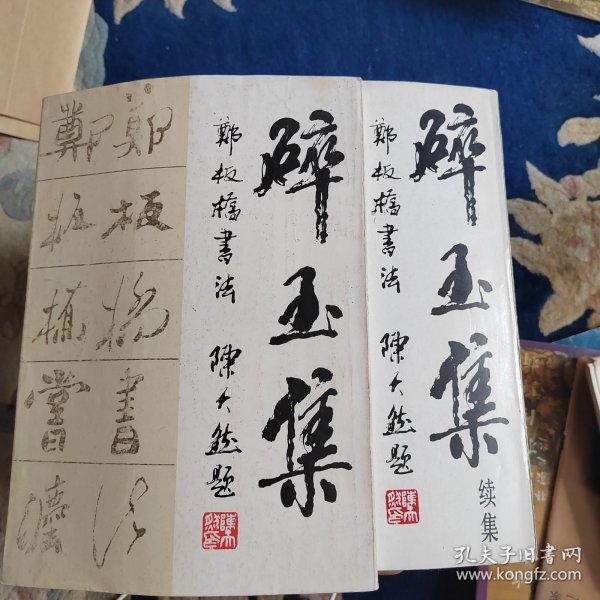 碎玉集
鄭板橋書法 陳大然题
鄭板橋書法
鄭板橋書法
碎玉集
续集
鄭板橋書法 陳大然题
孔夫子旧书网
www.kongfz.com